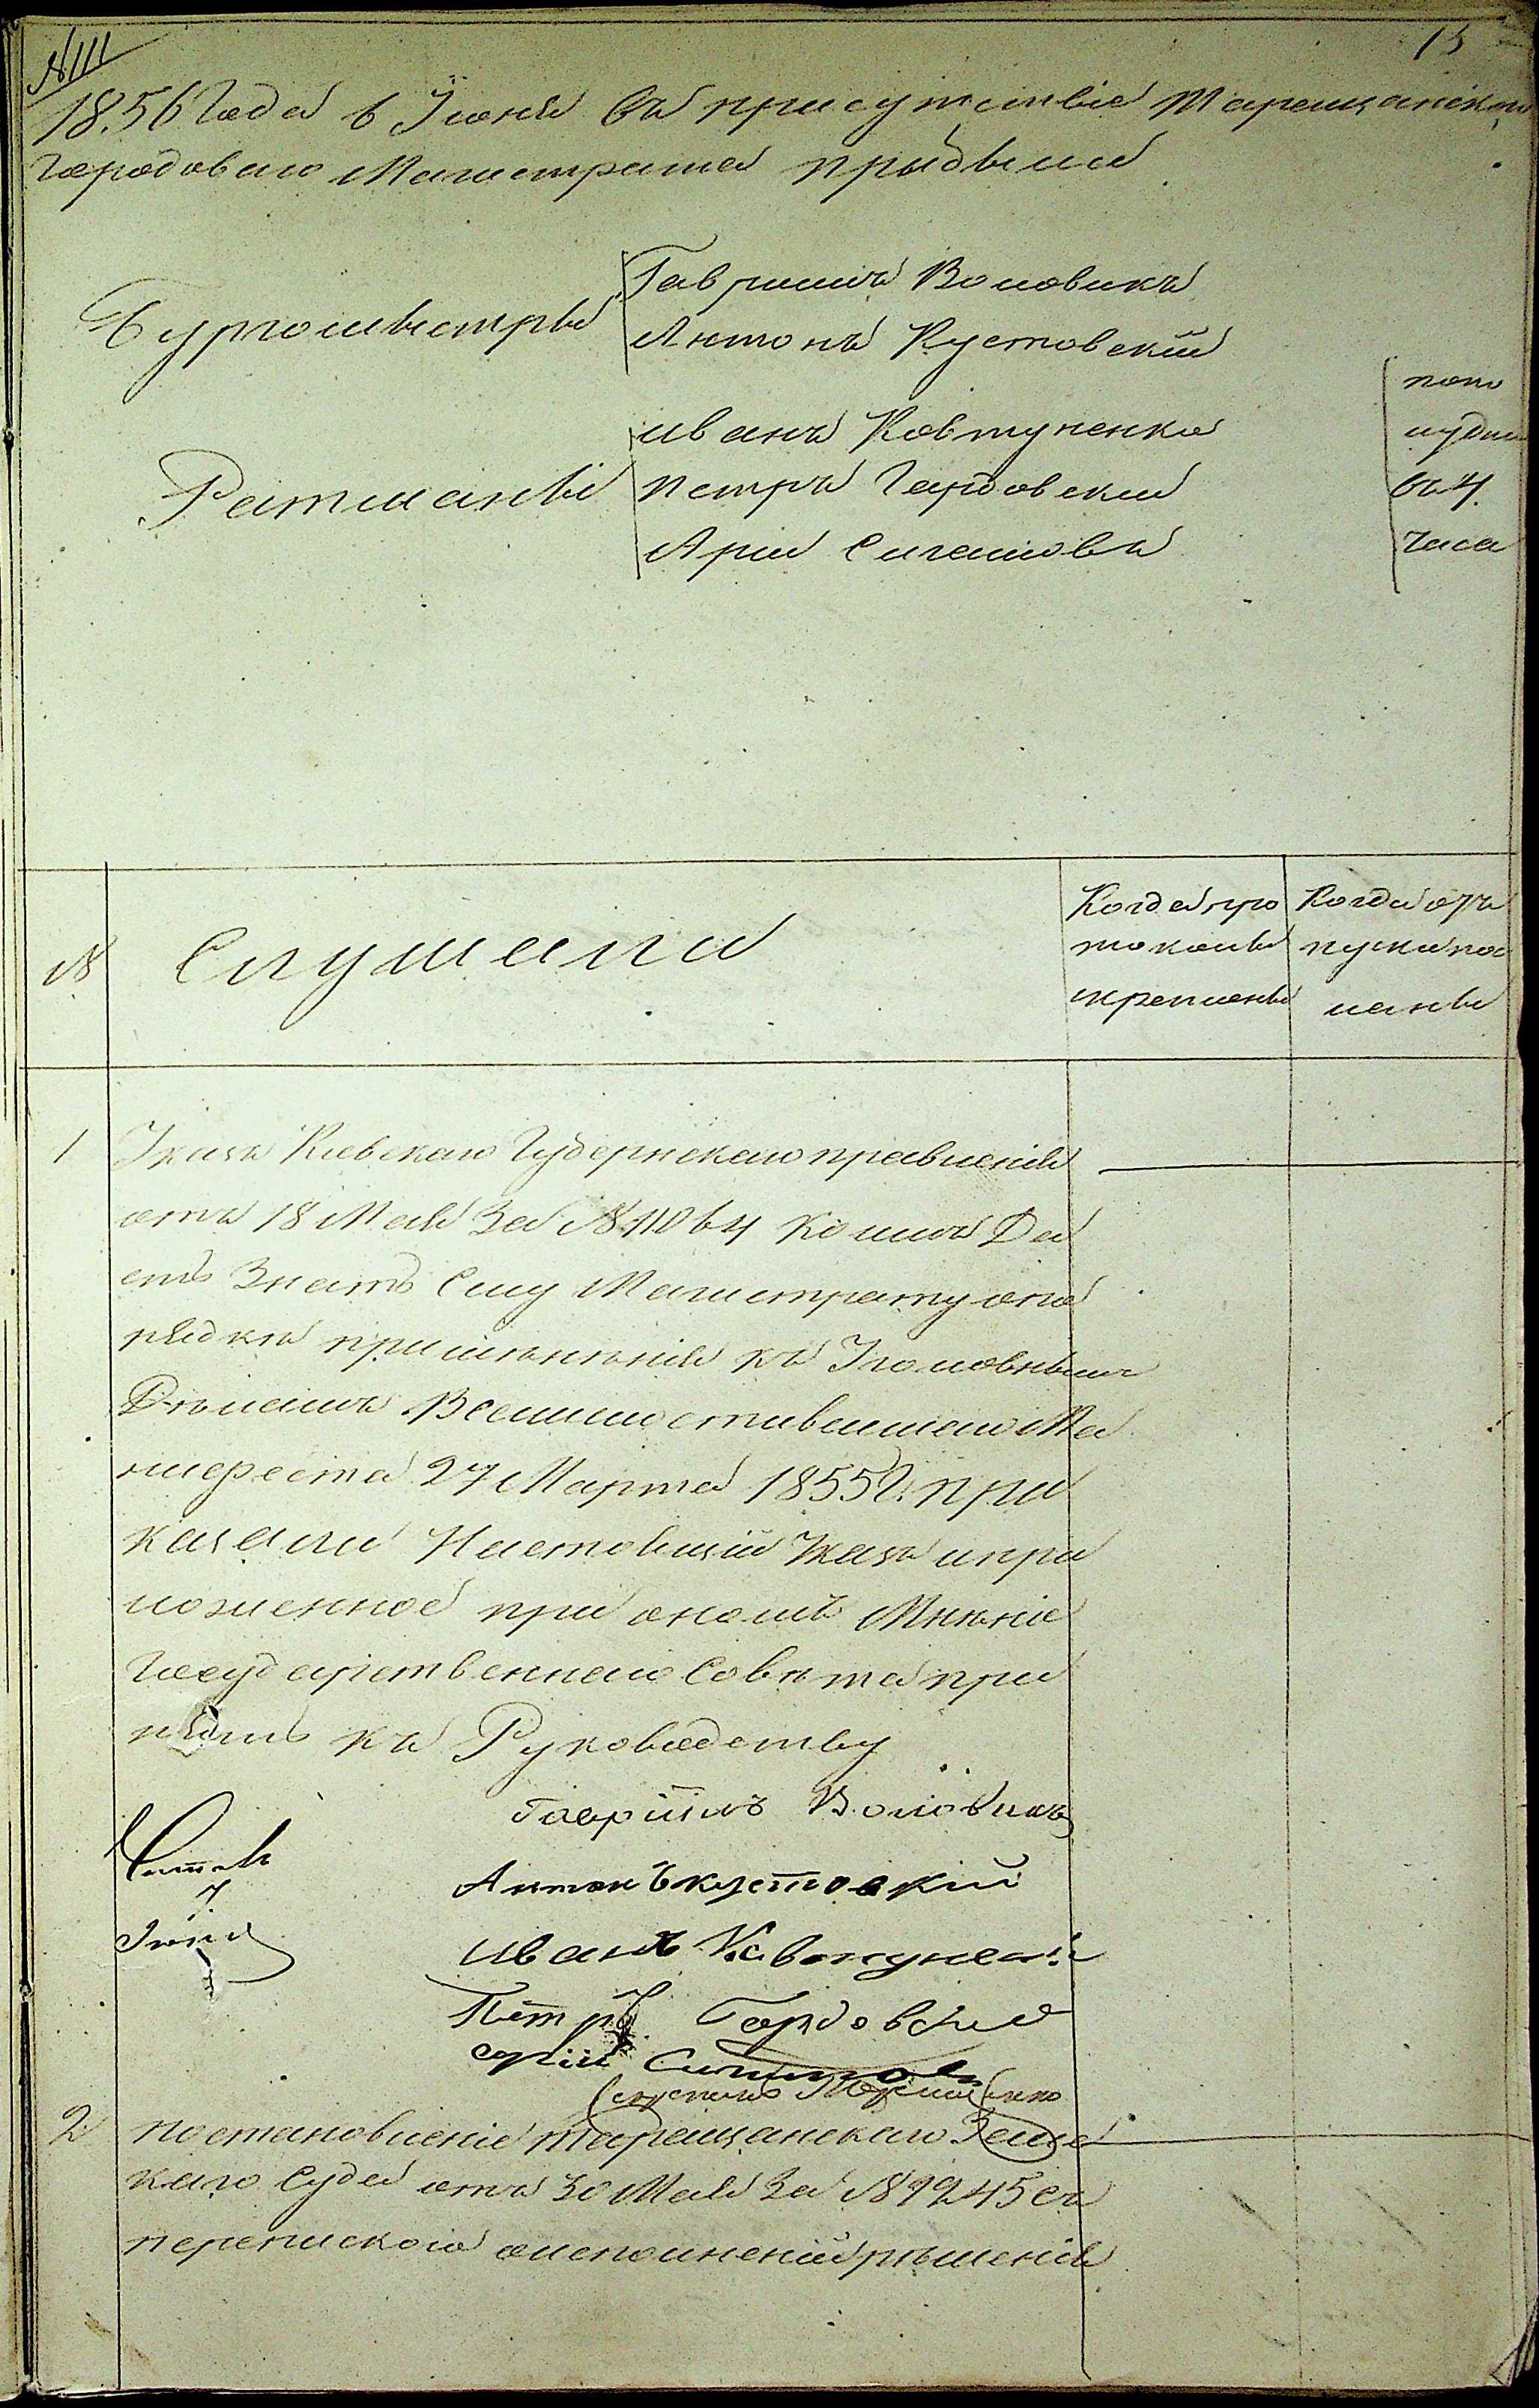 № 111
15
1856 Года 6 Іюня въ присутствіе Таращанскаго
Городоваго Магистрата прыбыли
Бургомистры
Гаврилъ Воловикъ
Антонъ Кустовскій
Ратманы
иванъ Ковтуненко
петръ Гардовскій
Арія Сигаловъ
попо
лудни
въ 4.
часа
№
Слушали
Когда про
токолы
скреплены
Когда отъ
пуски пос
ланы
1
Указъ Киевскаго Губернскаго правленія
отъ 18 Мая За № Коимъ Да
етъ Знать Сему Магистрату опо
рядкѣ примѣненія къ Уголовнымъ
Дѣламъ Всемилостивѣйшаго Ма
нифеста 27 Марта 1855 г. при
казали Настоящій Указъ ипри
ложенное при ономъ Мнѣніе
Государственнаго Совѣта при
нять къ Руководству
Гавріилъ Воловикъ
7
Іюня
Антонъ кустовскій
иванъ Ковтуненко
Петръ Гардовскій
арій Сигаловъ
2
постановленіе таращанскаго Земс
каго Суда отъ 30 Мая За № 9245 съ
перепискою оисполненій рѣшенія